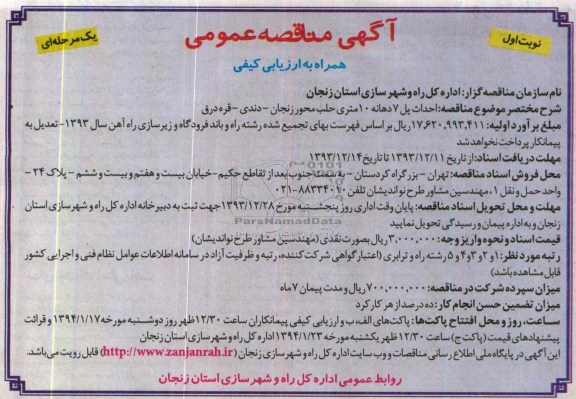 آگهی مناقصه عمومی
نوبت اول
یک مرحله‌ای
همراه به ارزیابی کیفی
نام سازمان مناقصه گزار: اداره کل راه و شهر سازی استان زنجان
شرح مختصر موضوع مناقصه: احداث پل ۷ دهانه ۱۰ متری حلب محور زنجان - دندی - قره درق
مبلغ بر آورد اولیه: ۱۷,۶۲۰,۹۹۳,۴۱۱ ریال بر اساس فهرست بهای تجمیع شده رشته راه و باند فرودگاه و زیرسازی راه آهن سال ۱۳۹۳- تعدیل به
پیمانکار پرداخت نخواهد شد
مهلت دریافت اسناد: از تاریخ ۱۳۹۳/۱۲/۱۱ تا تاریخ ۱۳۹۳/۱۲/۱۴
محل فروش اسناد مناقصه: تهران - بزرگراه کردستان - به سمت جنوب بعد از تقاطع حکیم - خیابان بیست و هفتم و بیست و ششم - پلاک ۲۴ -
واحد حمل و نقل ۱، مهندسین مشاور طرح نواندیشان تلفن ۸۸۳۳۴۰۱۰-۰۲۱
مهلت و محل تحویل اسناد مناقصه: پایان وقت اداری روز پنجشنبه مورخ ۱۳۹۳/۱۲/۲۸ جهت ثبت به دبیرخانه اداره کل راه و شهرسازی استان
زنجان و به اداره پیمان و رسیدگی تحویل نمایید
قیمت اسناد و نحوه واریز وجه: ۳,۰۰۰,۰۰۰ ریال بصورت نقدی (مهندسین مشاور طرح نواندیشان)
رتبه مورد نظر: ۱ و ۲ و ۳ و ۴ و ۵ رشته راه و ترابری (اعتبار گواهی شرکت کننده، رتبه و ظرفیت آزاد در سامانه اطلاعات عوامل نظام فنی و اجرایی کشور
قابل مشاهده باشد)
میزان سپرده شرکت در مناقصه: ۷۰۰,۰۰۰,۰۰۰ ریال و مدت پیمان ۷ ماه
میزان تضمین حسن انجام کار: ده در صد از هر کار کرد
ساعت، روز و محل افتتاح پاکت‌ها: پاکت‌های الف، ب و ارزیابی کیفی پیمانکاران ساعت ۱۲/۳۰ ظهر روز دوشنبه مورخه ۱۳۹۴/۱/۱۷ و قرائت
پیشنهادهای قیمت (پاکت ج) ساعت ۱۲/۳۰ ظهر یکشنبه مورخه ۱۳۹۴/۱/۲۳ اداره کل راه و شهر سازی استان زنجان
این آگهی در پایگاه ملی اطلاع رسانی مناقصات و وب سایت اداره کل راه و شهرسازی زنجان (http://www.zanjanrah.ir) قابل رویت می‌باشد.
روابط عمومی اداره کل راه و شهر سازی استان زنجان
ParsNamadData